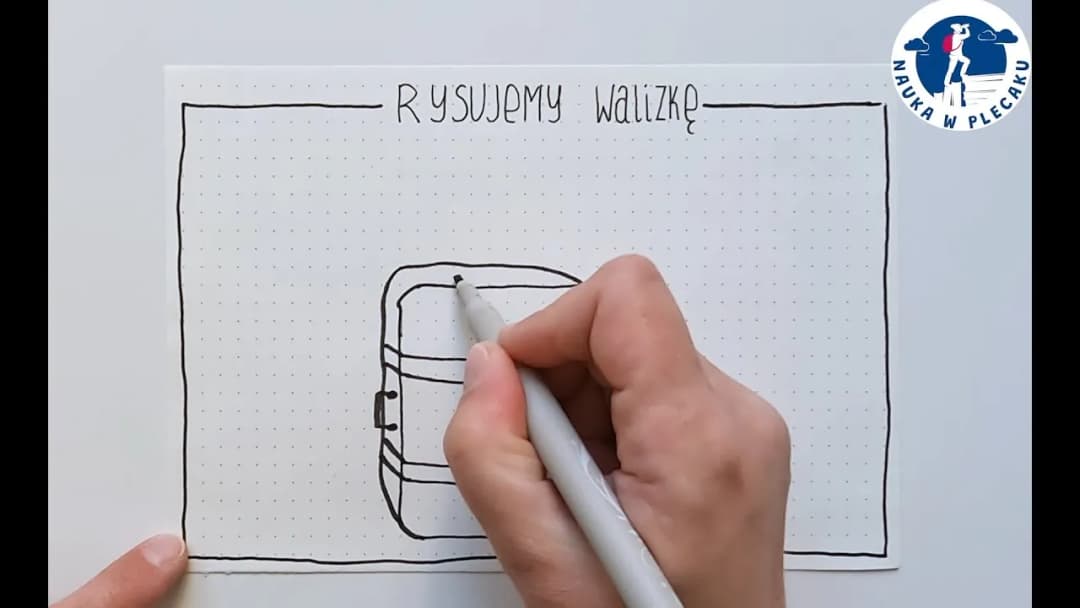 Rysujemy walizkę
NAUKA W PLECAKU